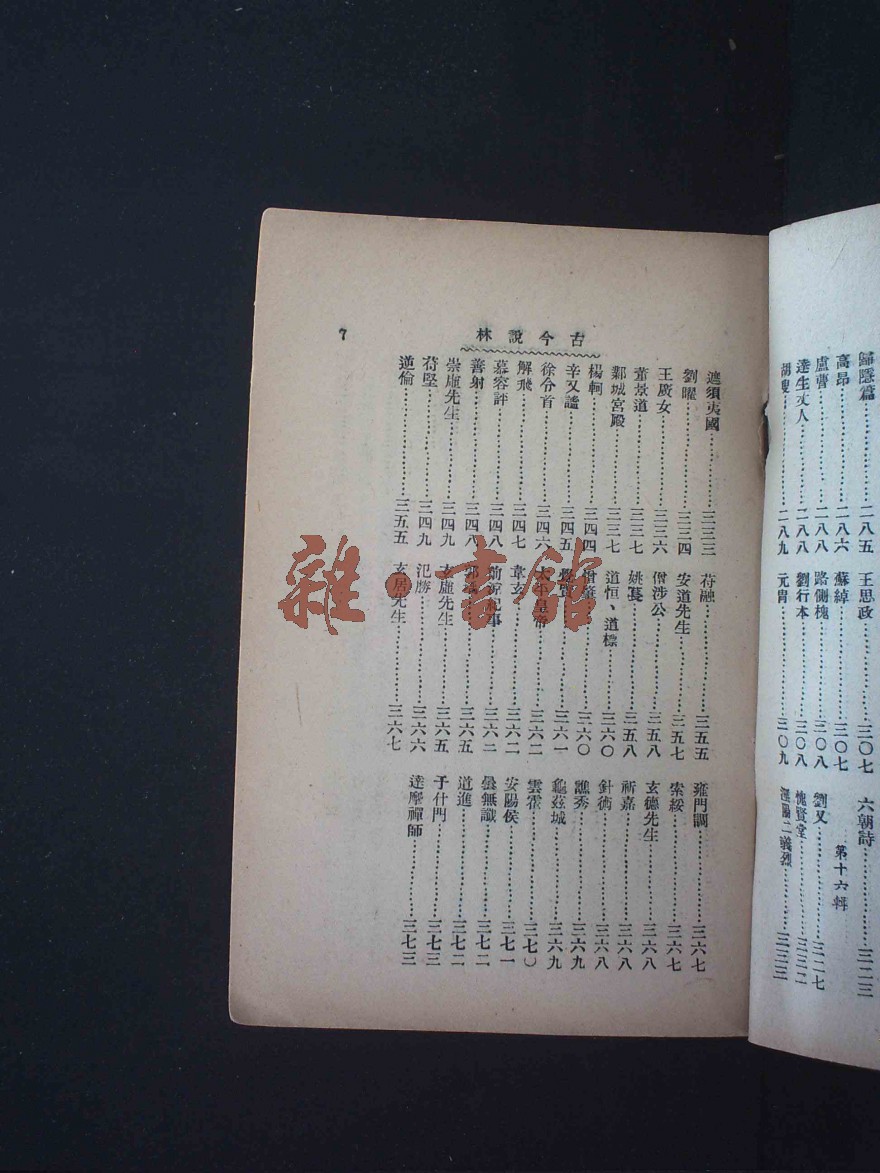 歸隱篇……二八五
高昂……二八六
盧曹……二八八
達生丈人……二八八
胡叟……二八九
王思政……三〇七
蘇綽……三〇七
路側槐……三〇八
劉行本……三〇八
元冑……三〇九
六朝詩……三二三
第十六輯
劉叉……三二七
愧賢堂……三三二
二義烈……三三三
古今說林
7
遮須夷國……三三三
劉曜……三三四
王廣女……三三六
董景道……三三七
鄴城宮殿……三三七
楊軻……三四四
辛又謐……三四五
徐令首……三四六
解飛……三四七
慕容評……三四八
善射……三四八
崇虛先生……三四九
苻堅……三四九
逆倫……三五五
苻融……三五五
安道先生……三五七
僧涉公……三五八
姚萇……三五八
道恒、道標……三六〇
三六〇
覺賢……三六一
太平皇帝……三六二
韋玄……三六二
前涼紀事……三六二
郭瑀……三六五
玄虛先生……三六五
氾勝……三六六
玄居先生……三六七
雍門調……三六七
索綏……三六七
玄德先生……三六八
祈嘉……三六八
針術……三六八
譙秀……三六九
龜茲城……三六九
雲霍……三七〇
安陽侯……三七一
曇無讖……三七二
道進……三七二
于什門……三七三
達摩禪師……三七三
雜·書館